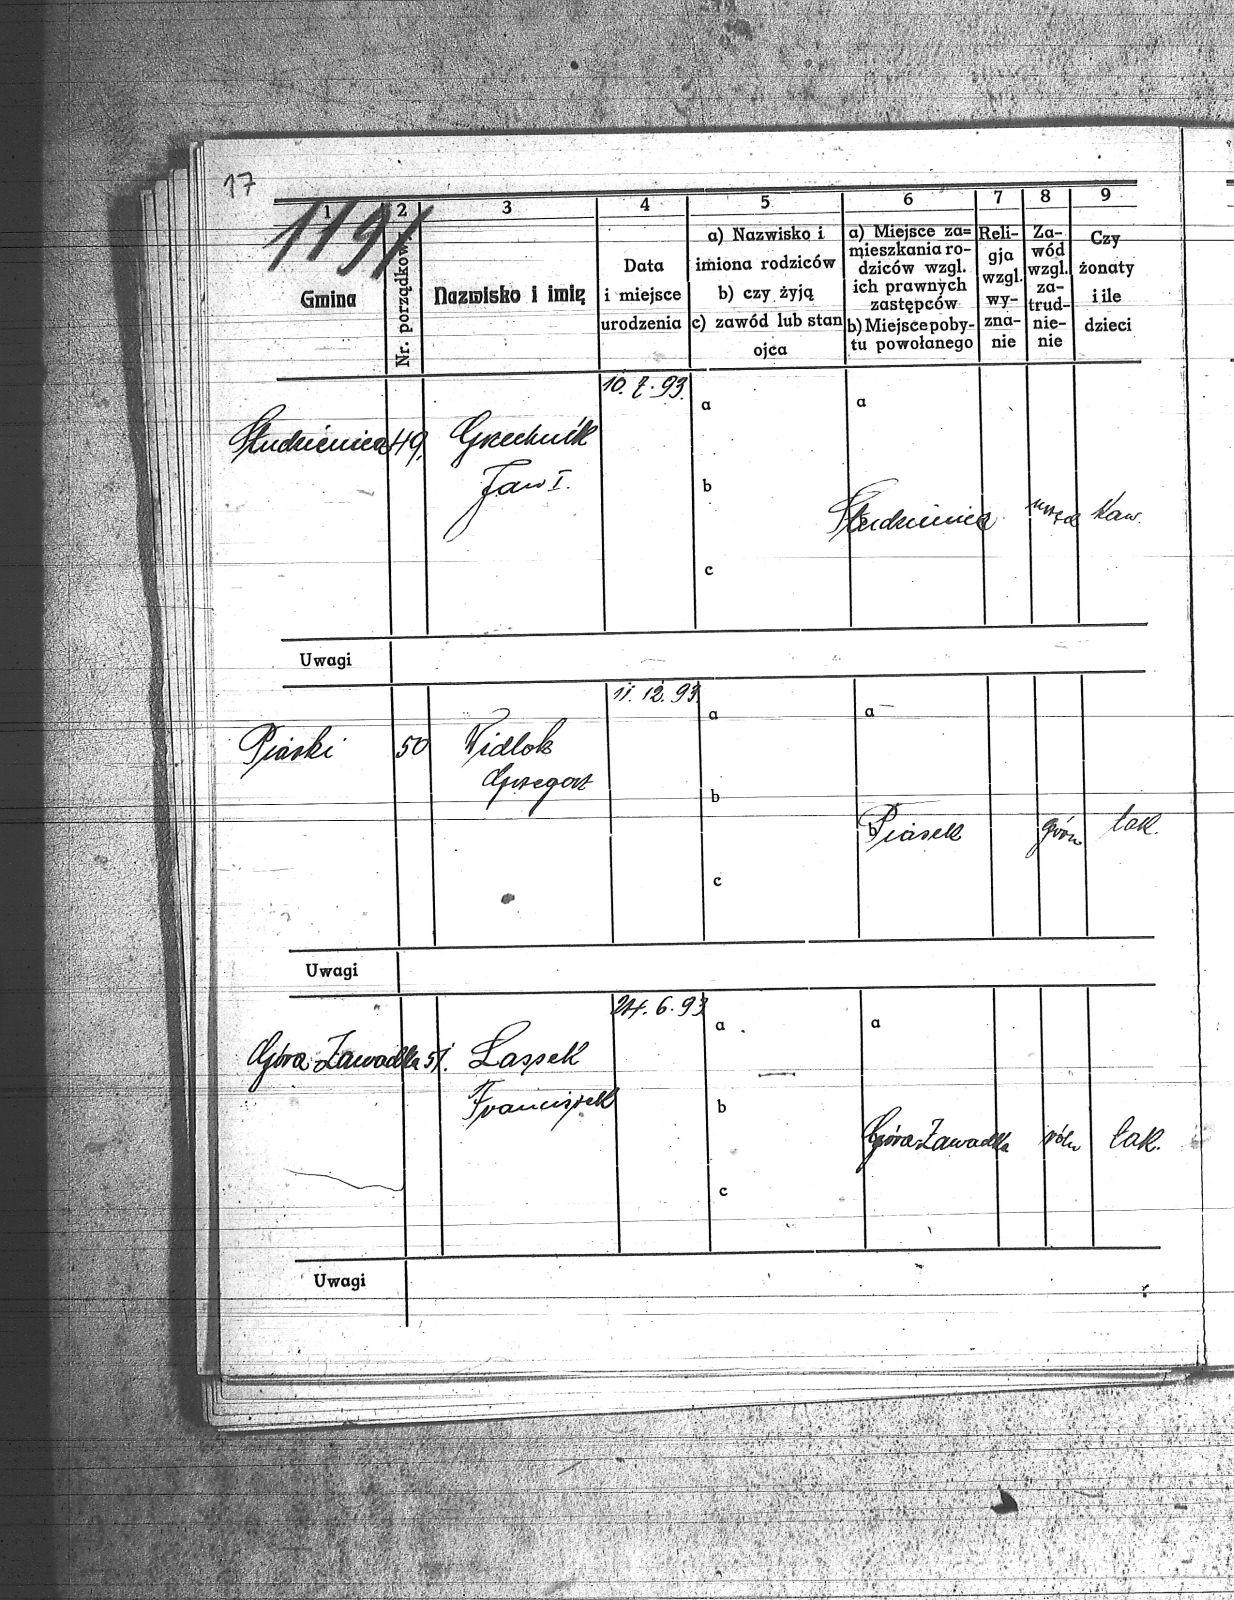 17
1191
1 2 3 4 5 6 7 8 9
Gmina
Nr. porządkow.
Nazwisko i imię
Data
i miejsce
urodzenia
a) Nazwisko i
imiona rodziców
b) czy żyją
c) zawód lub stan
ojca
a) Miejsce za=
mieszkania ro-
dziców wzgl.
ich prawnych
zastępców
b) Miejsce poby-
tu powołanego
Reli-
gja
wzgl.
wy-
zna-
nie
Za-
wód
wzgl.
za-
trud-
nie-
nie
Czy
żonaty
i ile
dzieci
10. 7. 93.
a a
Studzienica 49. Grzechnik
Jan I.
b
Studzienica Kaw.
c
Uwagi
11. 12. 93.
a a
Piaski 50 Widlok
Grzegorz
b
b Piasek górn tak.
c
Uwagi
24. 6. 93
a a
Góra Zawadka 51. Lassek
Franciszek
b
Góra Zawadka róln tak.
c
Uwagi